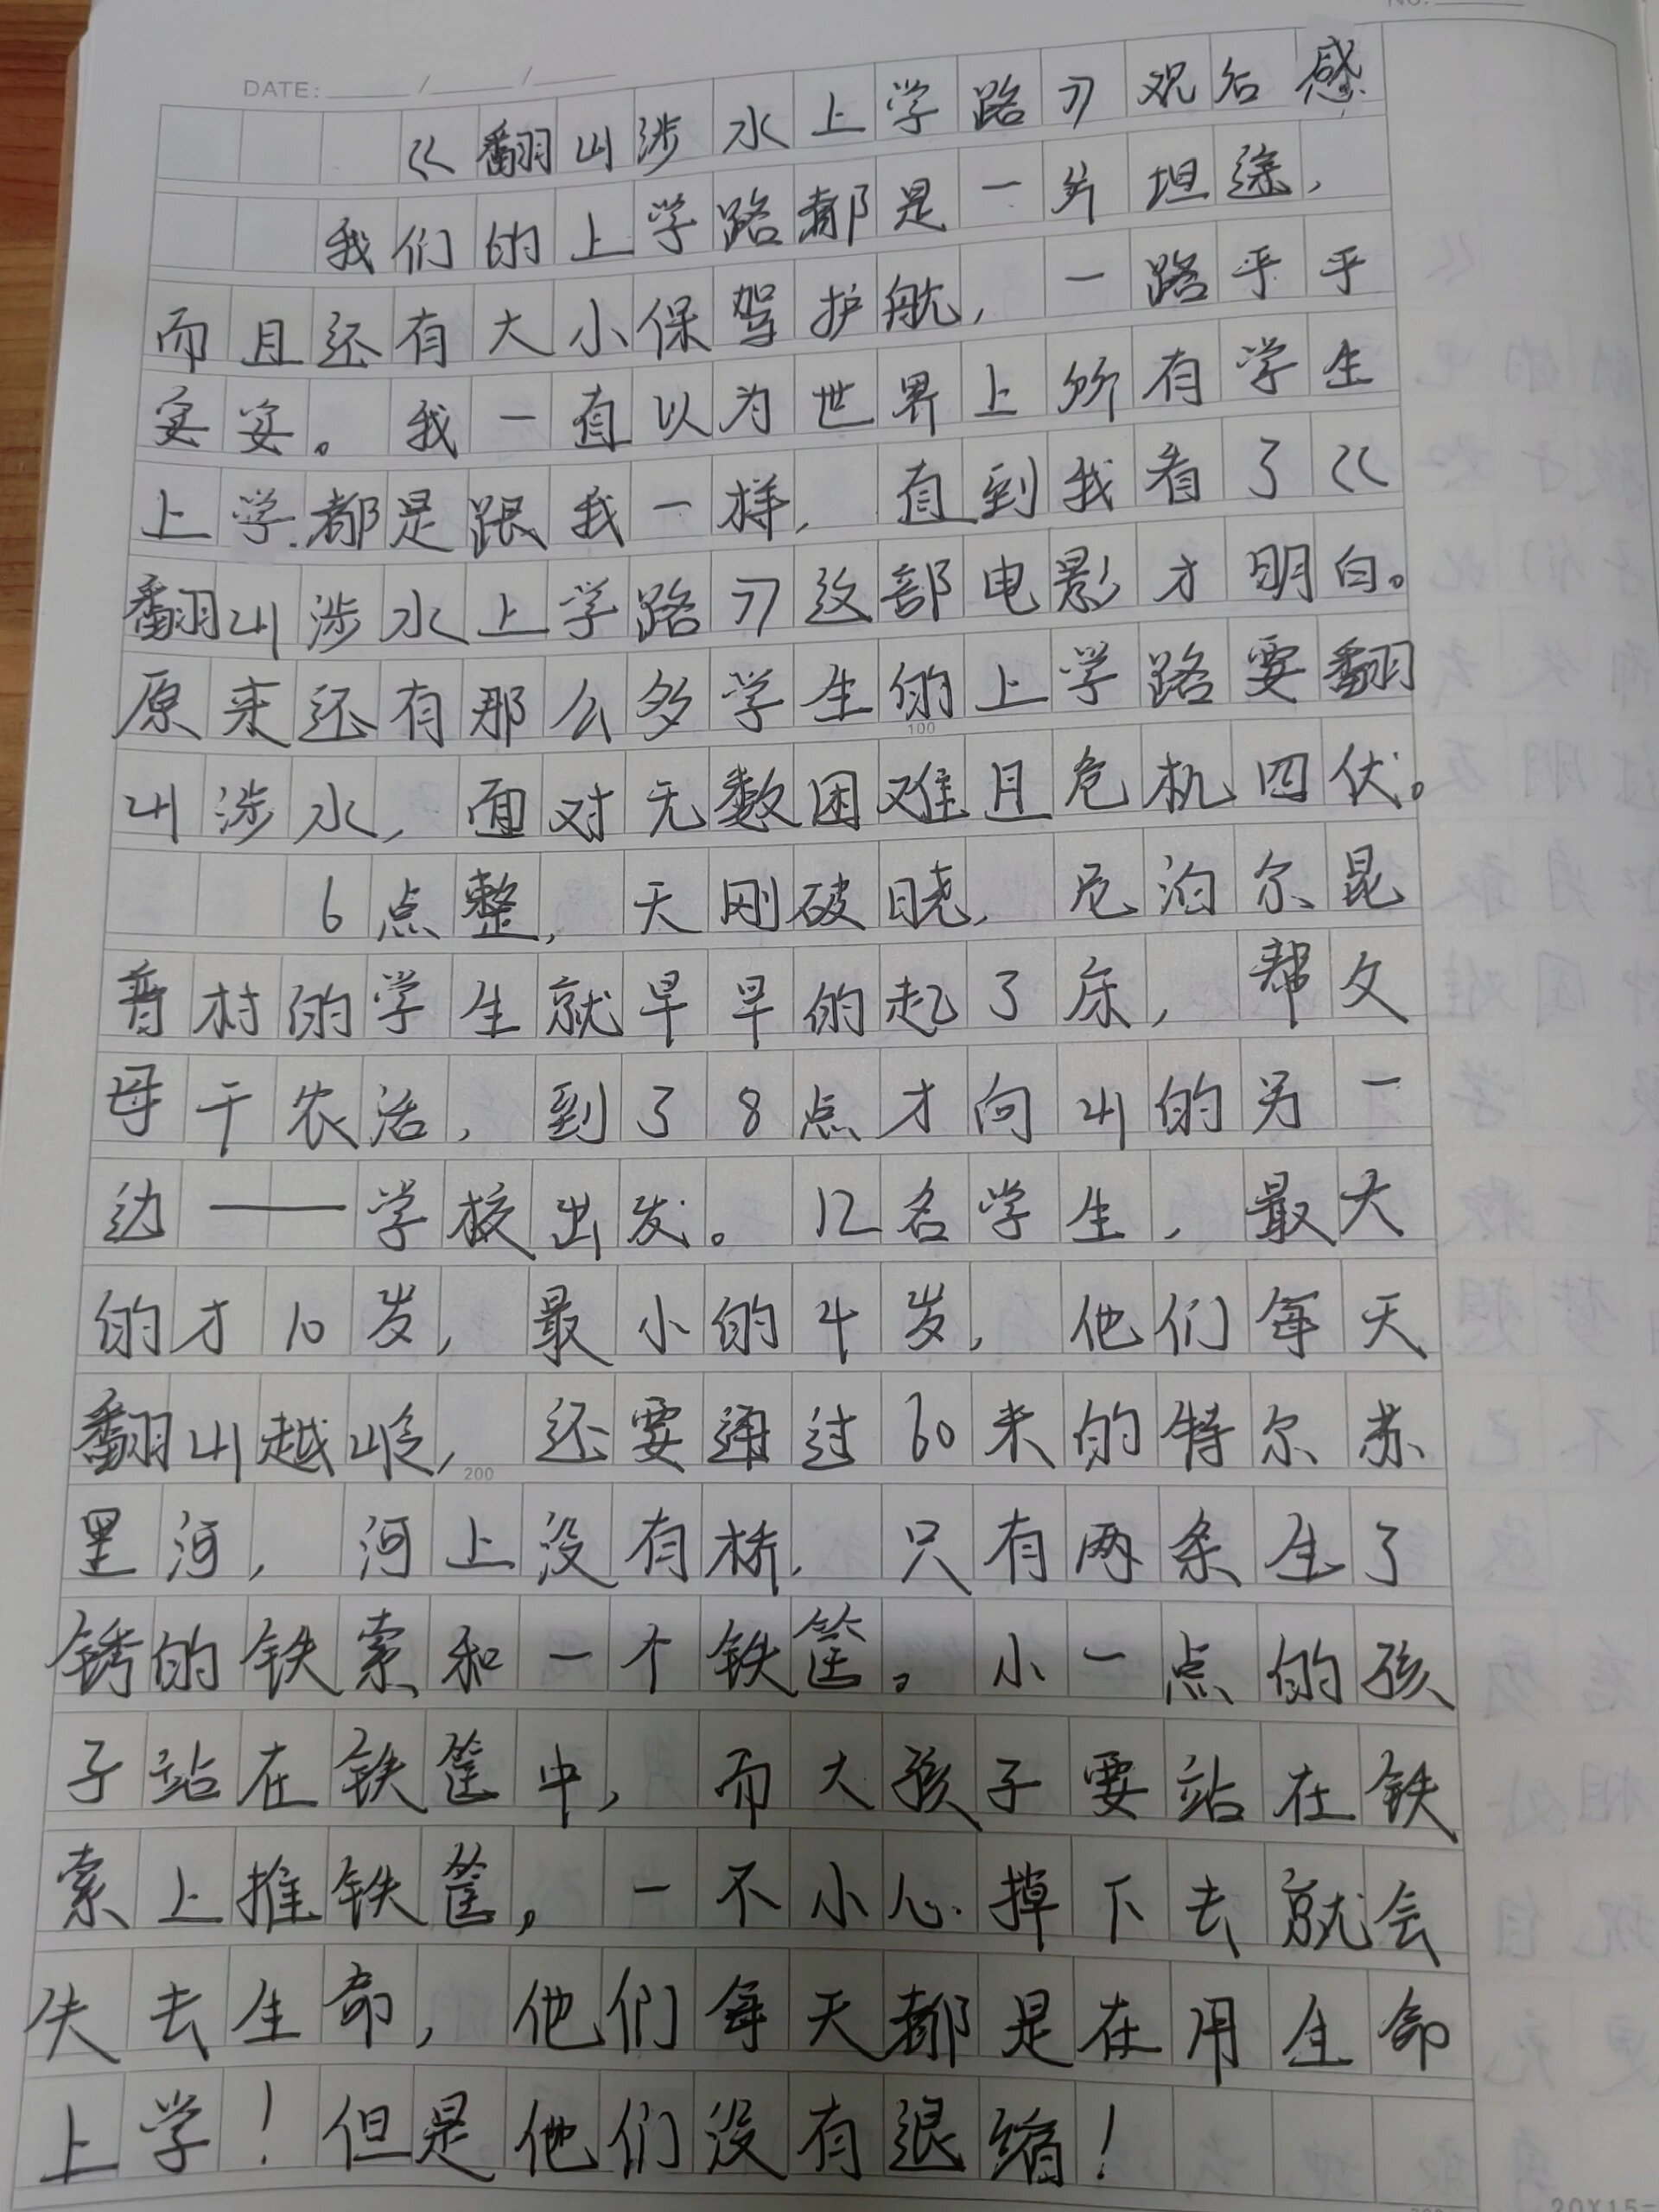 NO.
DATE: / /
《翻山涉水上学路》观后感
我们的上学路都是一片坦途,
而且还有大小保驾护航,一路平平
安安。我一直以为世界上所有学生
上学都是跟我一样,直到我看了《
翻山涉水上学路》这部电影才明白。
原来还有那么多学生的上学路要翻
100
山涉水,面对无数困难且危机四伏。
6点整,天刚破晓,尼泊尔昆
普村的学生就早早的起了床,帮父
母干农活,到了8点才向山的另一
边——学校出发。12名学生,最大
的才10岁,最小的4岁,他们每天
翻山越岭,还要通过60米的特尔苏
200
里河,河上没有桥,只有两条生了
锈的铁索和一个铁筐。小一点的孩
子站在铁筐中,而大孩子要站在铁
索上推铁筐,一不小心掉下去就会
失去生命,他们每天都是在用生命
上学!但是他们没有退缩!